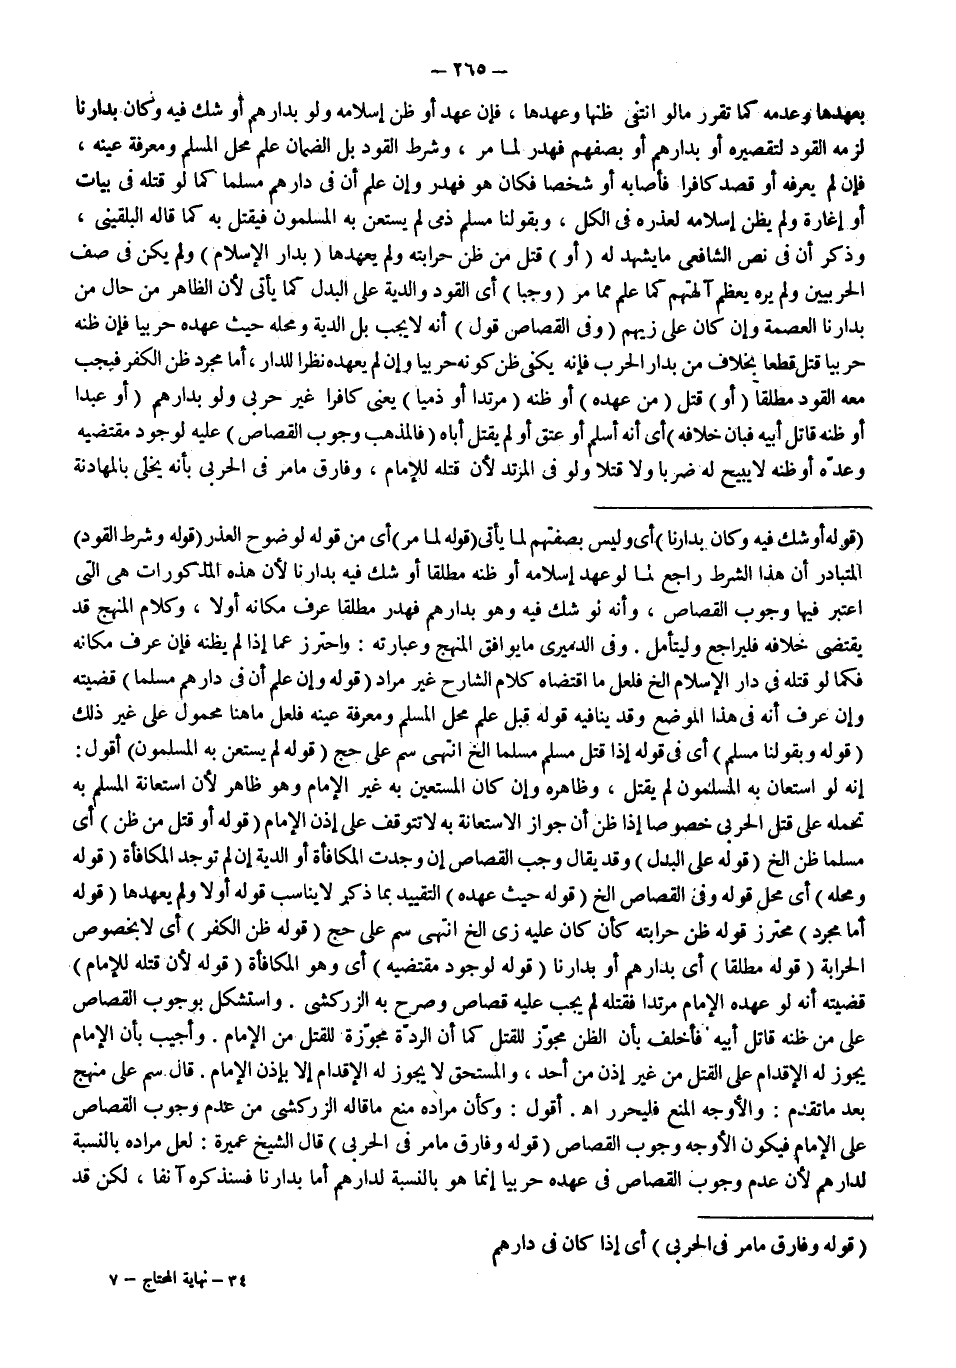 – ٢٦٥ –
بعهدها وعدمه كما تقرر مالو انتفى ظنها وعهدها ، فإن عهد أو ظن إسلامه ولو بدارهم أو شك فيه وكان بدارنا
لزمه القود لتقصيره أو بدارهم أو بصفهم فهدر لما مر ، وشرط القود بل الضمان علم محل المسلم ومعرفة عينه ،
فإن لم يعرفه أو قصد كافرا فأصابه أو شخصا فكان هو فهدر وإن علم أن فى دارهم مسلما كما لو قتله فى بيات
أو إغارة ولم يظن إسلامه لعذره فى الكل ، وبقولنا مسلم ذمى لم يستعن به المسلمون فيقتل به كما قاله البلقينى ،
وذكر أن فى نص الشافعى مايشهد له ( أو ) قتل من ظن حرابته ولم يعهدها ( بدار الإسلام ) ولم يكن فى صف
الحربيين ولم يره يعظم آلهتهم كما علم مما مر ( وجبا ) أى القود والدية على البدل كما يأتى لأن الظاهر من حال من
بدارنا العصمة وإن كان على زيهم ( وفى القصاص قول ) أنه لايجب بل الدية ومحله حيث عهده حربيا فإن ظنه
حربيا قتل قطعا بخلاف من بدار الحرب فإنه يكفى ظن كونه حربيا وإن لم يعهده نظرا للدار ، أما مجرد ظن الكفر فيجب
معه القود مطلقا ( أو ) قتل ( من عهده ) أو ظنه ( مرتدا أو ذميا ) يعنى كافرا غير حربى ولو بدارهم ( أو عبدا
أو ظنه قاتل أبيه فبان خلافه ) أى أنه أسلم أو عتق أو لم يقتل أباه ( فالمذهب وجوب القصاص ) عليه لوجود مقتضيه
وعدّه أو ظنه لايبيح له ضربا ولا قتلا ولو فى المرتد لأن قتله للإمام ، وفارق مامر فى الحربى بأنه يخلى بالمهادنة
(قوله أو شك فيه وكان بدارنا ) أى وليس بصفتهم لما يأتى (قوله لما مر) أى من قوله لوضوح العذر (قوله وشرط القود)
المتبادر أن هذا الشرط راجع لما لو عهد إسلامه أو ظنه مطلقا أو شك فيه بدارنا لأن هذه المذكورات هى التى
اعتبر فيها وجوب القصاص ، وأنه لو شك فيه وهو بدارهم فهدر مطلقا عرف مكانه أولا ، وكلام المنهج قد
يقتضى خلافه فليراجع وليتأمل . وفى الدميرى مايوافق المنهج وعبارته : واحترز عما إذا لم يظنه فإن عرف مكانه
فكما لو قتله فى دار الإسلام الخ فلعل ما اقتضاه كلام الشارح غير مراد ( قوله وإن علم أن فى دارهم مسلما ) قضيته
وإن عرف أنه فى هذا الموضع وقد ينافيه قوله قبل علم محل المسلم ومعرفة عينه فلعل ماهنا محمول على غير ذلك
( قوله وبقولنا مسلم ) أى فى قوله إذا قتل مسلم مسلما الخ انتهى سم على حج ( قوله لم يستعن به المسلمون) أقول :
إنه لو استعان به المسلمون لم يقتل ، وظاهره وإن كان المستعين به غير الإمام وهو ظاهر لأن استعانة المسلم به
تحمله على قتل الحربى خصوصا إذا ظن أن جواز الاستعانة به لاتتوقف على إذن الإمام ( قوله أو قتل من ظن ) أى
مسلما ظن الخ ( قوله على البدل ) وقد يقال وجب القصاص إن وجدت المكافأة أو الدية إن لم توجد المكافأة ( قوله
ومحله ) أى محل قوله وفى القصاص الخ ( قوله حيث عهده ) التقييد بما ذكر لايناسب قوله أولا ولم يعهدها ( قوله
أما مجرد ) محترز قوله ظن حرابته كأن كان عليه زى الخ انتهى سم على حج ( قوله ظن الكفر ) أى لابخصوص
الحرابة ( قوله مطلقا ) أى بدارهم أو بدارنا ( قوله لوجود مقتضيه ) أى وهو المكافأة ( قوله لأن قتله للإمام )
قضيته أنه لو عهده الإمام مرتدا فقتله لم يجب عليه قصاص وصرح به الزركشى . واستشكل بوجوب القصاص
على من ظنه قاتل أبيه فأخلف بأن الظن مجوّز للقتل كما أن الردّة مجوّزة للقتل من الإمام . وأجيب بأن الإمام
يجوز له الإقدام على القتل من غير إذن من أحد ، والمستحق لا يجوز له الإقدام إلا بإذن الإمام . قال سم على منهج
بعد ماتقدم : والأوجه المنع فليحرر اهـ . أقول : وكأن مراده منع ماقاله الزركشى من عدم وجوب القصاص
على الإمام فيكون الأوجه وجوب القصاص ( قوله وفارق مامر فى الحربى ) قال الشيخ عميرة : لعل مراده بالنسبة
لدارهم لأن عدم وجوب القصاص فى عهده حربيا إنما هو بالنسبة لدارهم أما بدارنا فسنذكره آنفا ، لكن قد
( قوله وفارق مامر فى الحربى ) أى إذا كان فى دارهم
٣٤ – نهاية المحتاج – ٧